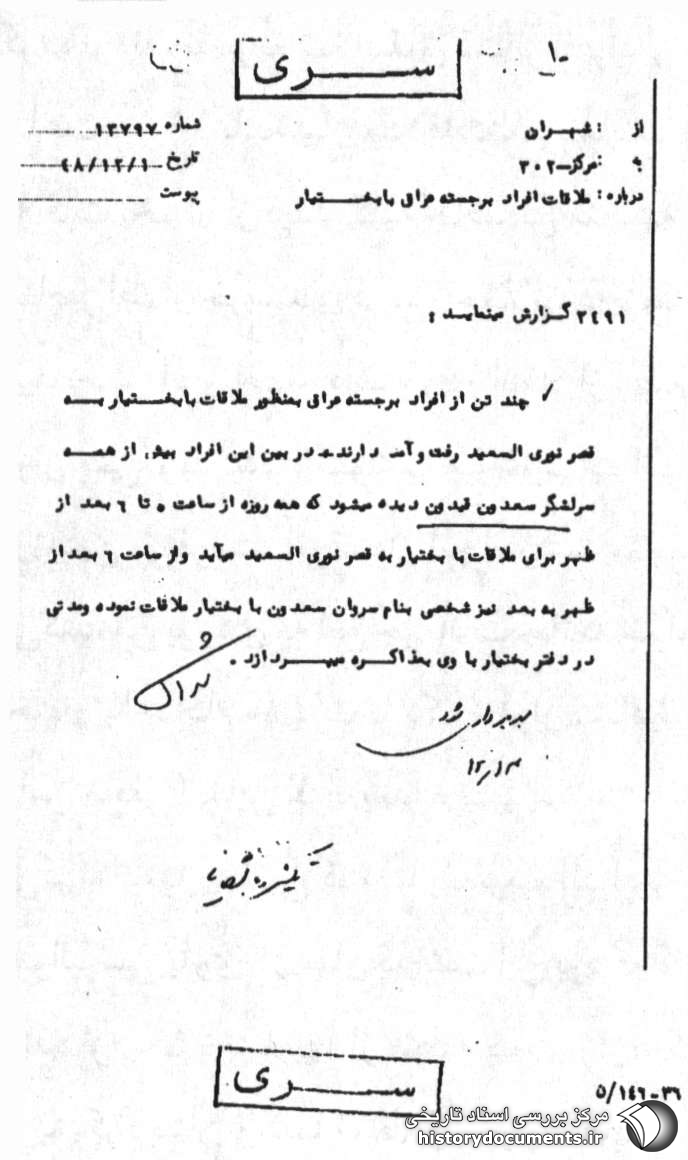 سری
از : شهران
شماره ۱۳۷۹۷
به : مرکز-۳۰۲
تاریخ ۴۸/۱۲/۱۰
درباره : ملاقات افراد برجسته عراقی با بختیار
پیوست
۲٤۹۱ گزارش مینماید :
چند تن از افراد برجسته عراقی بمنظور ملاقات با بختیار به
قصر نوری السعید رفت و آمد دارند. در بین این افراد بیش از همه
سرلشگر سعدون قیدون دیده میشود که همه روزه از ساعت ۵ تا ٦ بعد از
ظهر برای ملاقات با بختیار به قصر نوری السعید میآید و از ساعت ٦ بعد از
ظهر به بعد نیز شخصی بنام سروان سعدون با بختیار ملاقات نموده و مدتی
در دفتر بختیار با وی بمذاکره میپردازد .
بهره برداری شود
۱۲/۱۳
سری
۵/۱٤٦-۳٦
مرکز بررسی اسناد تاریخی
historydocuments.ir